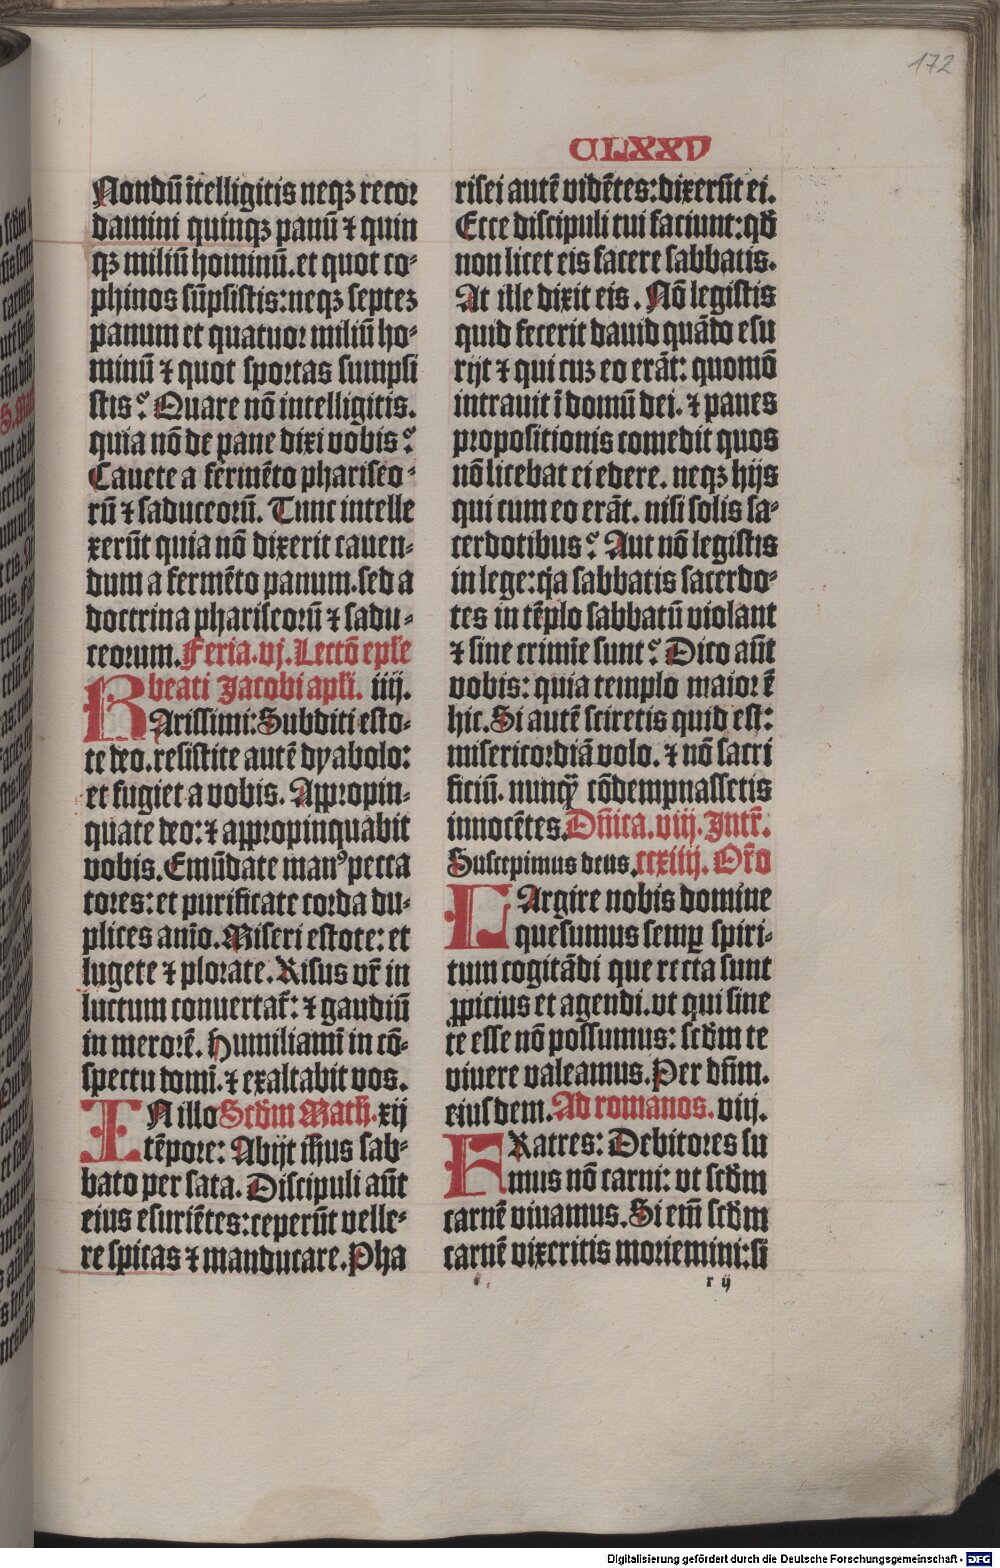 172
CLXXV
Nondū ītelligitis neqꝫ recor
damini quinqꝫ panū ⁊ quin
qꝫ miliū hominū. et quot co-
phinos sūpsistis: neqꝫ septeꝫ
panum et quatuor miliū ho-
minū ⁊ quot sportas sumpsi
stis? Quare nō intelligitis.
quia nō de pane dixi vobis?
Cauete a fermēto phariseo-
rū ⁊ saduceorū. Tunc intelle
xerūt quia nō dixerit cauen-
dum a fermēto panum. sed a
doctrina phariseorū ⁊ sadu-
ceorum. Feria. vj. Lectō epľe
beati Jacobi apľi. iiij.
KArissimi: Subditi esto-
te deo. resistite autē dyabolo:
et fugiet a vobis. Appropin-
quate deo: ⁊ appropinquabit
vobis. Emūdate manꝰ pecca
tores: et purificate corda du-
plices anīo. Miseri estote: et
lugete ⁊ plorate. Risus vr̄ in
luctum conuertat̄: ⁊ gaudiū
in merorē. Humiliamī in cō-
spectu domī. ⁊ exaltabit vos.
IN illo Scđm Math̄. xij
tēpore: Abijt ih̄us sab-
bato per sata. Discipuli aūt
eius esuriētes: ceperūt velle-
re spicas ⁊ manducare. Pha
risei autē vidētes: dixerūt ei.
Ecce discipuli tui faciunt: qđ
non licet eis facere sabbatis.
At ille dixit eis. Nō legistis
quid fecerit dauid quādo esu
rijt ⁊ qui cuꝫ eo erāt: quomō
intrauit ī domū dei. ⁊ panes
propositionis comedit quos
nō licebat ei edere. neqꝫ hijs
qui cum eo erāt. nisi solis sa-
cerdotibus? Aut nō legistis
in lege: qꝛ sabbatis sacerdo-
tes in tēplo sabbatū violant
⁊ sine crimīe sunt? Dico aūt
vobis: quia templo maior ē
hic. Si autē sciretis quid est:
misericordiā volo. ⁊ nō sacri
ficiū. nunqꝫ cōdempnassetis
innocētes. Dn̄ica. viij. Intr̄.
Suscepimus deus. ccxiiij. Or̄o
LArgire nobis domine
quesumus semꝑ spiri-
tum cogitādi que recta sunt
ꝓpicius et agendi. vt qui sine
te esse nō possumus: scđm te
viuere valeamus. Per dn̄m.
eiusdem. Ad romanos. viij.
FRatres: Debitores su
mus nō carni: vt scđm
carnē viuamus. Si em̄ scđm
carnē vixeritis moriemini: si
r ij
Digitalisierung gefördert durch die Deutsche Forschungsgemeinschaft - DFG